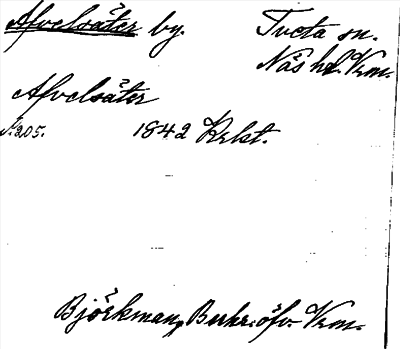 Afvelsäter by. Tveta sn.
Näs hd. Vrm.
Afvelsäter
s. 205. 1842 Krkt.
Björkman, Beskr. öfv. Vrm.